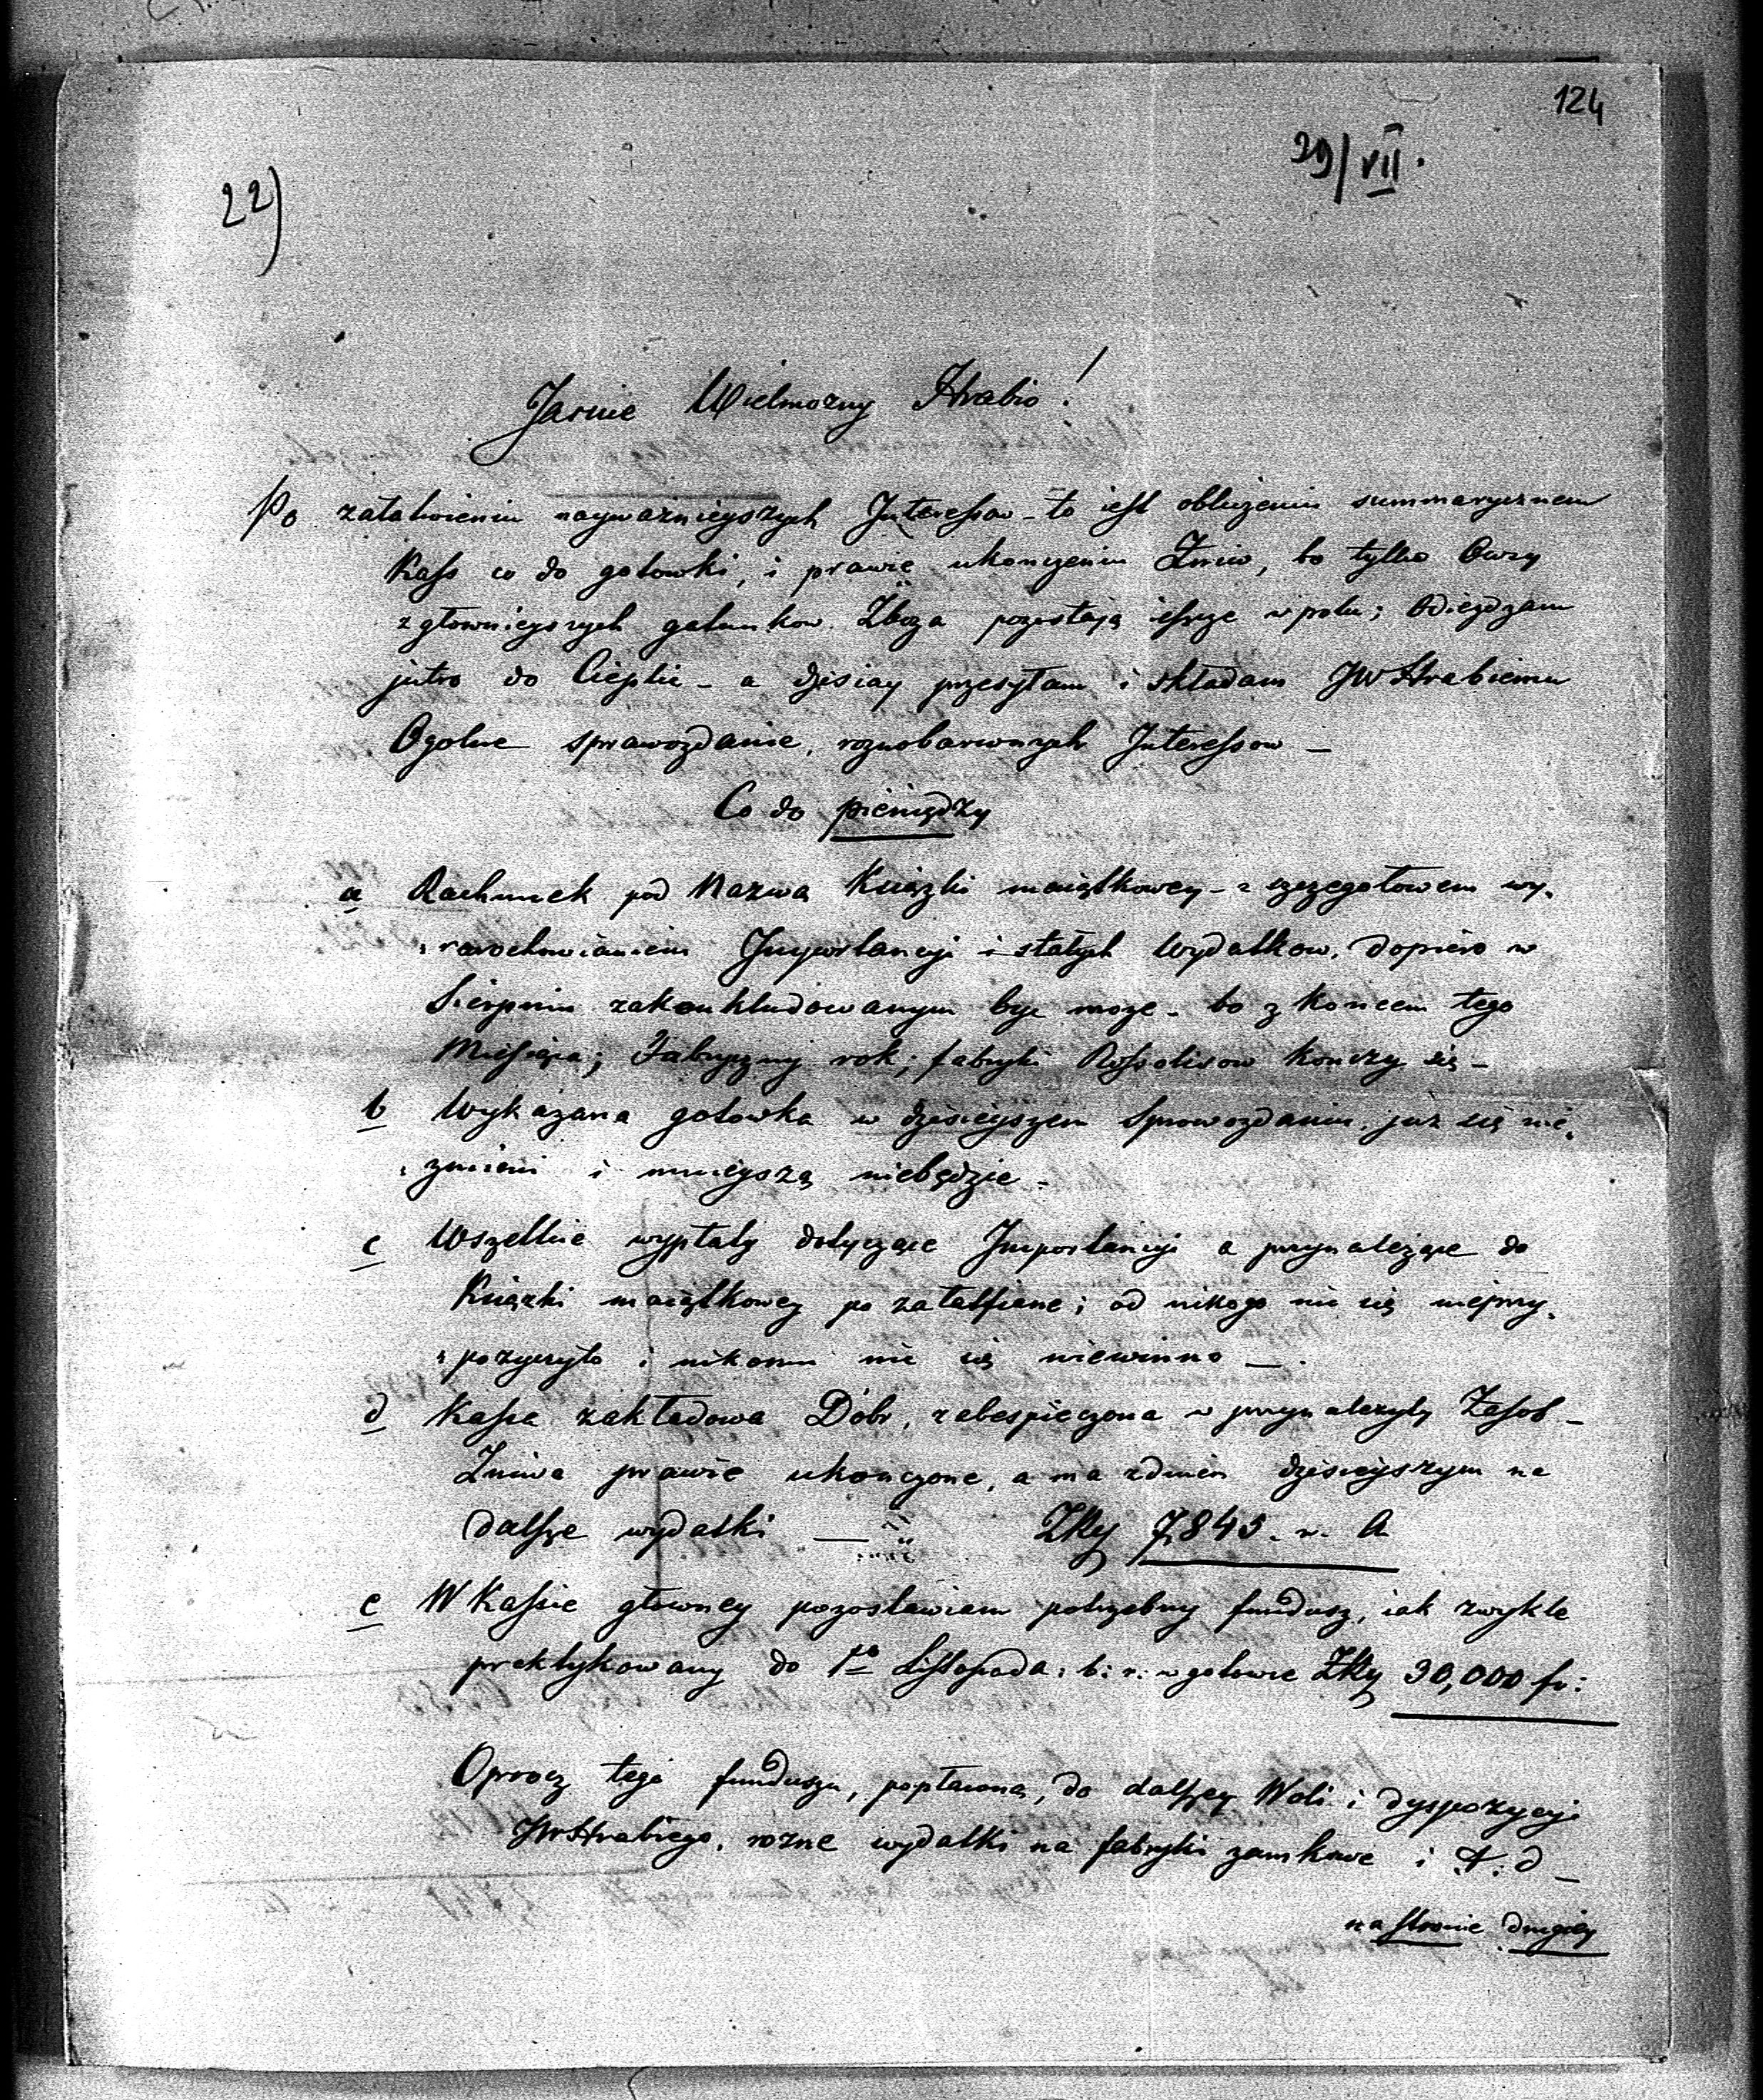 124
29/VII.
22)
Jasnie Wielmozny Hrabio!
Po zatatwieniu naywaznieyszych Interessow - to iest obliczeniu summarycznem
Kass co do gotowki, i prawie ukonczeniu Zniw, bo tylko Owsy
z głownieyszych gatunkow Zboza pozostaią ieszcze w polu; Odiezdzam
jutro do Cieplic - a dzisiay przesyłam i składam JW Hrabiemu
Ogolne sprawozdanie, roznobarwnych Interessow -
Co do pieniędzy
a Rachunek pod Nazwą Książki maiątkowey - z szczegołowem wy-
Importancyi i stałych Wydatkow, dopiero w
Sierpniu zakonkludowanym byc moze - bo z koncem tego
Miesiąca; Fabryczny rok; fabryki Rossolisow konczy się -
b Wykazana gotowka w dzisieyszem Sprawozdaniu, już się nie
zmieni i mnieyszą niebędzie -
c Wszelkie wypłaty dotyczące Importancyi a przynależące do
Książki maiątkowey po załatwiane; od nikogo nic się nieprzy-
pozyczyło i nikomu nic się niewinno -
d Kassa zakładowa Dóbr, zabespieczona w przynalezyty Zasob -
Zniwa prawie ukonczone, a ma zdniem dzisieyszym na
dalsze wydatki — ZRy 7,845. w. A
e W Kassie głowney pozostawiam potrzebny fundusz, iak zwykle
praktykowany do 1go Listopada: b: r: w gotowce ZRy 30,000 fr:
Oprocz tego funduszu, popłacono, do dalszey Woli i dyspozycyi
JWHrabiego, rozne wydatki na fabryki zamkowe i t: d -
na stronie drugiey